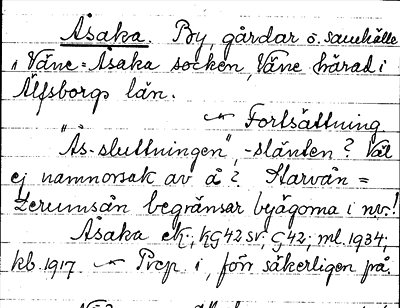 Åsaka. By, gårdar o. samhälle
i Väne-Åsaka socken, Väne härad i
Älfsborgs län.
Fortsättning
"Ås-sluttningen", -slänten? Väl
ej namnorsak av å? Slarvån =
Lerumsån begränsar byägorna i nv.!
Åsaka ek; kG42sv; G42; ml. 1934;
kb. 1917. Prep. i, förr säkerligen på.